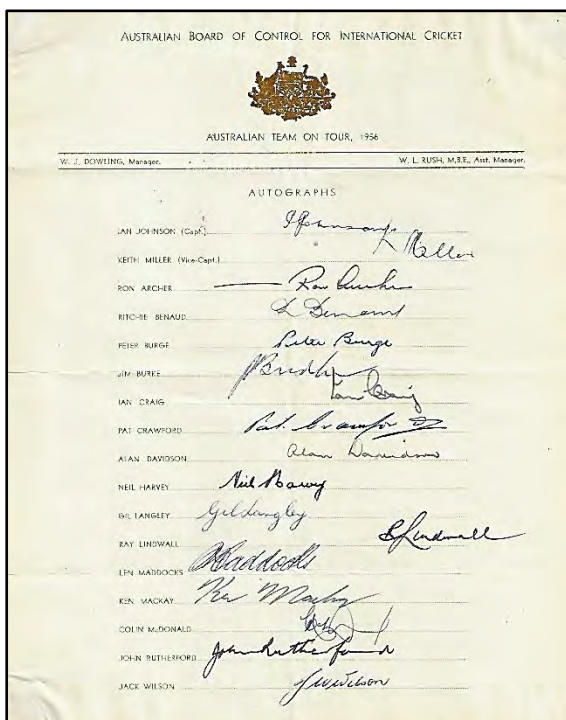 AUSTRALIAN BOARD OF CONTROL FOR INTERNATIONAL CRICKET
AUSTRALIAN TEAM ON TOUR, 1956
W. J. DOWLING, Manager. W. L. RUSH, M.B.E., Asst. Manager.
AUTOGRAPHS
IAN JOHNSON (Capt.) I Johnson
KEITH MILLER (Vice-Capt.) K Miller
RON ARCHER Ron Archer
RITCHIE BENAUD R Benaud
PETER BURGE Peter Burge
JIM BURKE J Burke
IAN CRAIG Ian Craig
PAT CRAWFORD Pat. Crawford
ALAN DAVIDSON Alan Davidson
NEIL HARVEY Neil Harvey
GIL LANGLEY Gil Langley
RAY LINDWALL R Lindwall
LEN MADDOCKS L Maddocks
KEN MACKAY Ken Mackay
COLIN McDONALD
JOHN RUTHERFORD John Rutherford
JACK WILSON J W Wilson